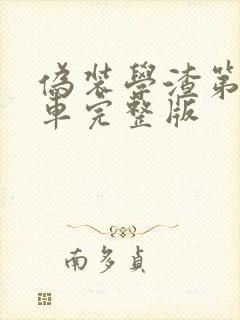 偽装學渣第
車完整版
南多貞